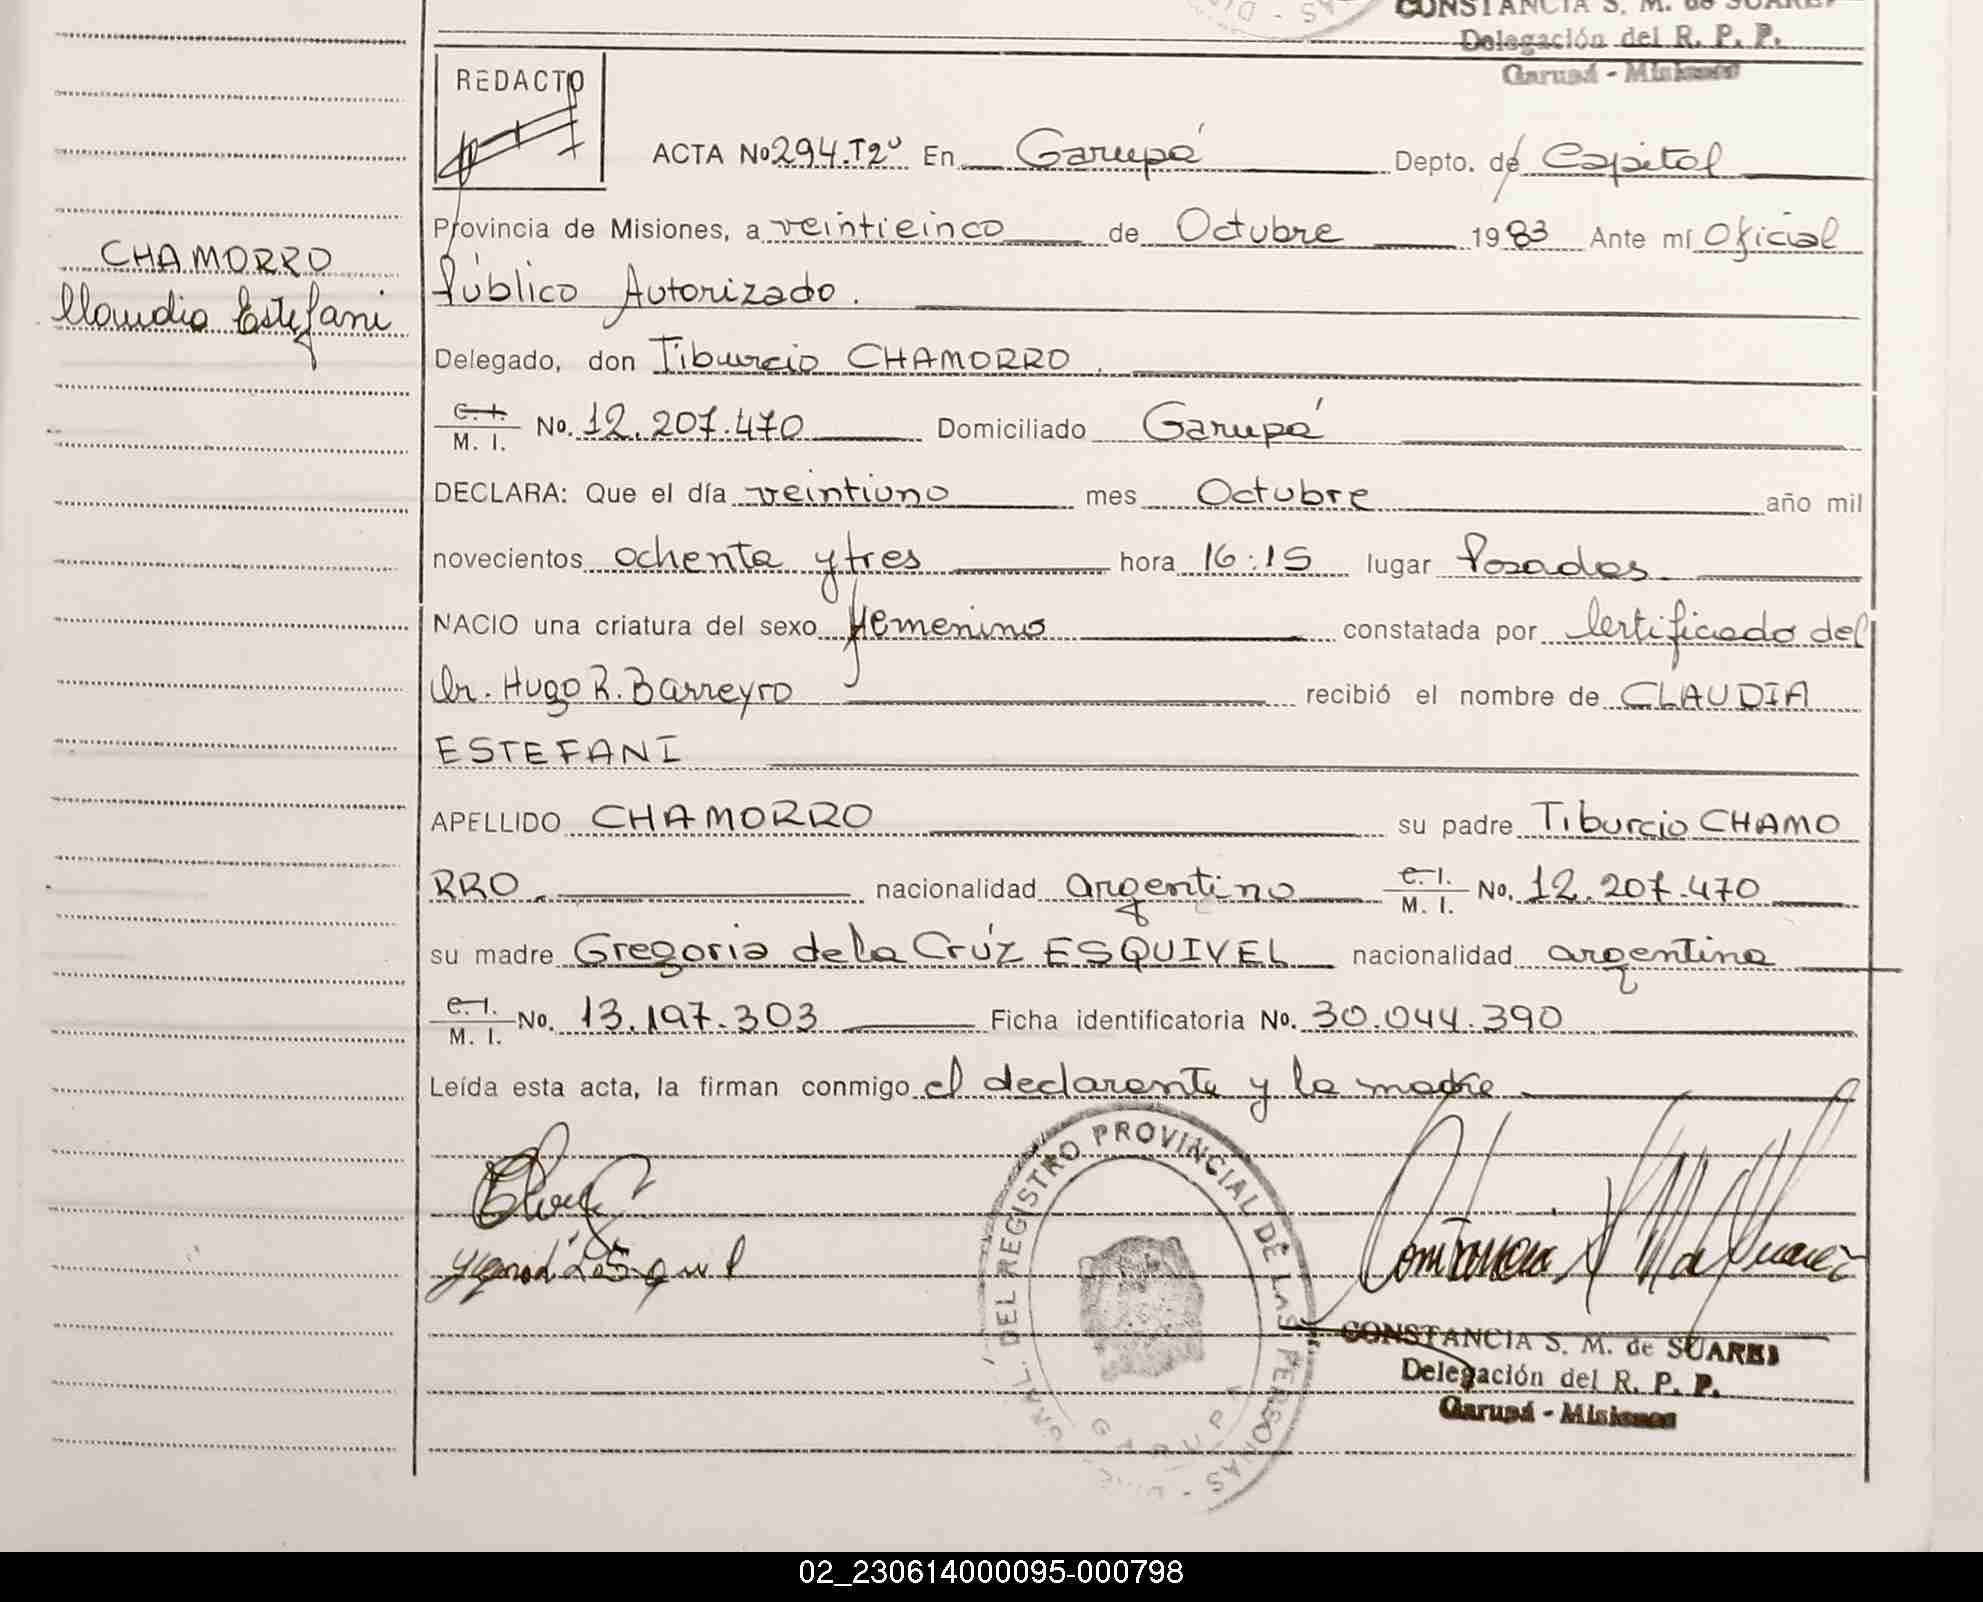 CONSTANCIA S. M. de SUAREZ
Delegación del R. P. P.
Garupá - Misiones
REDACTO
ACTA No 294.T2º En Garupá Depto. de Capital
Provincia de Misiones, a veinticinco de Octubre 1983 Ante mí Oficial
Público Autorizado.
Delegado, don Tiburcio CHAMORRO.
C. I.
M. I. No. 12.207.470 Domiciliado Garupá
DECLARA: Que el día veintiuno mes Octubre año mil
novecientos ochenta y tres hora 16:15 lugar Posadas
NACIO una criatura del sexo femenino constatada por Certificado del
Dr. Hugo R. Barreyro recibió el nombre de CLAUDIA
ESTEFANI
APELLIDO CHAMORRO su padre Tiburcio CHAMO
RRO. nacionalidad argentino C. I. M. I. No. 12.207.470
su madre Gregoria de la Crúz ESQUIVEL nacionalidad argentina
C. I. M. I. No. 13.197.303 Ficha identificatoria No. 30.044.390
Leída esta acta, la firman conmigo el declarante y la madre
CHAMORRO
Claudia Estefani
DEL REGISTRO PROVINCIAL DE LAS PERSONAS
GARUPA
Constancia S M de Suarez
CONSTANCIA S. M. de SUAREZ
Delegación del R. P. P.
Garupá - Misiones
02_230614000095-000798